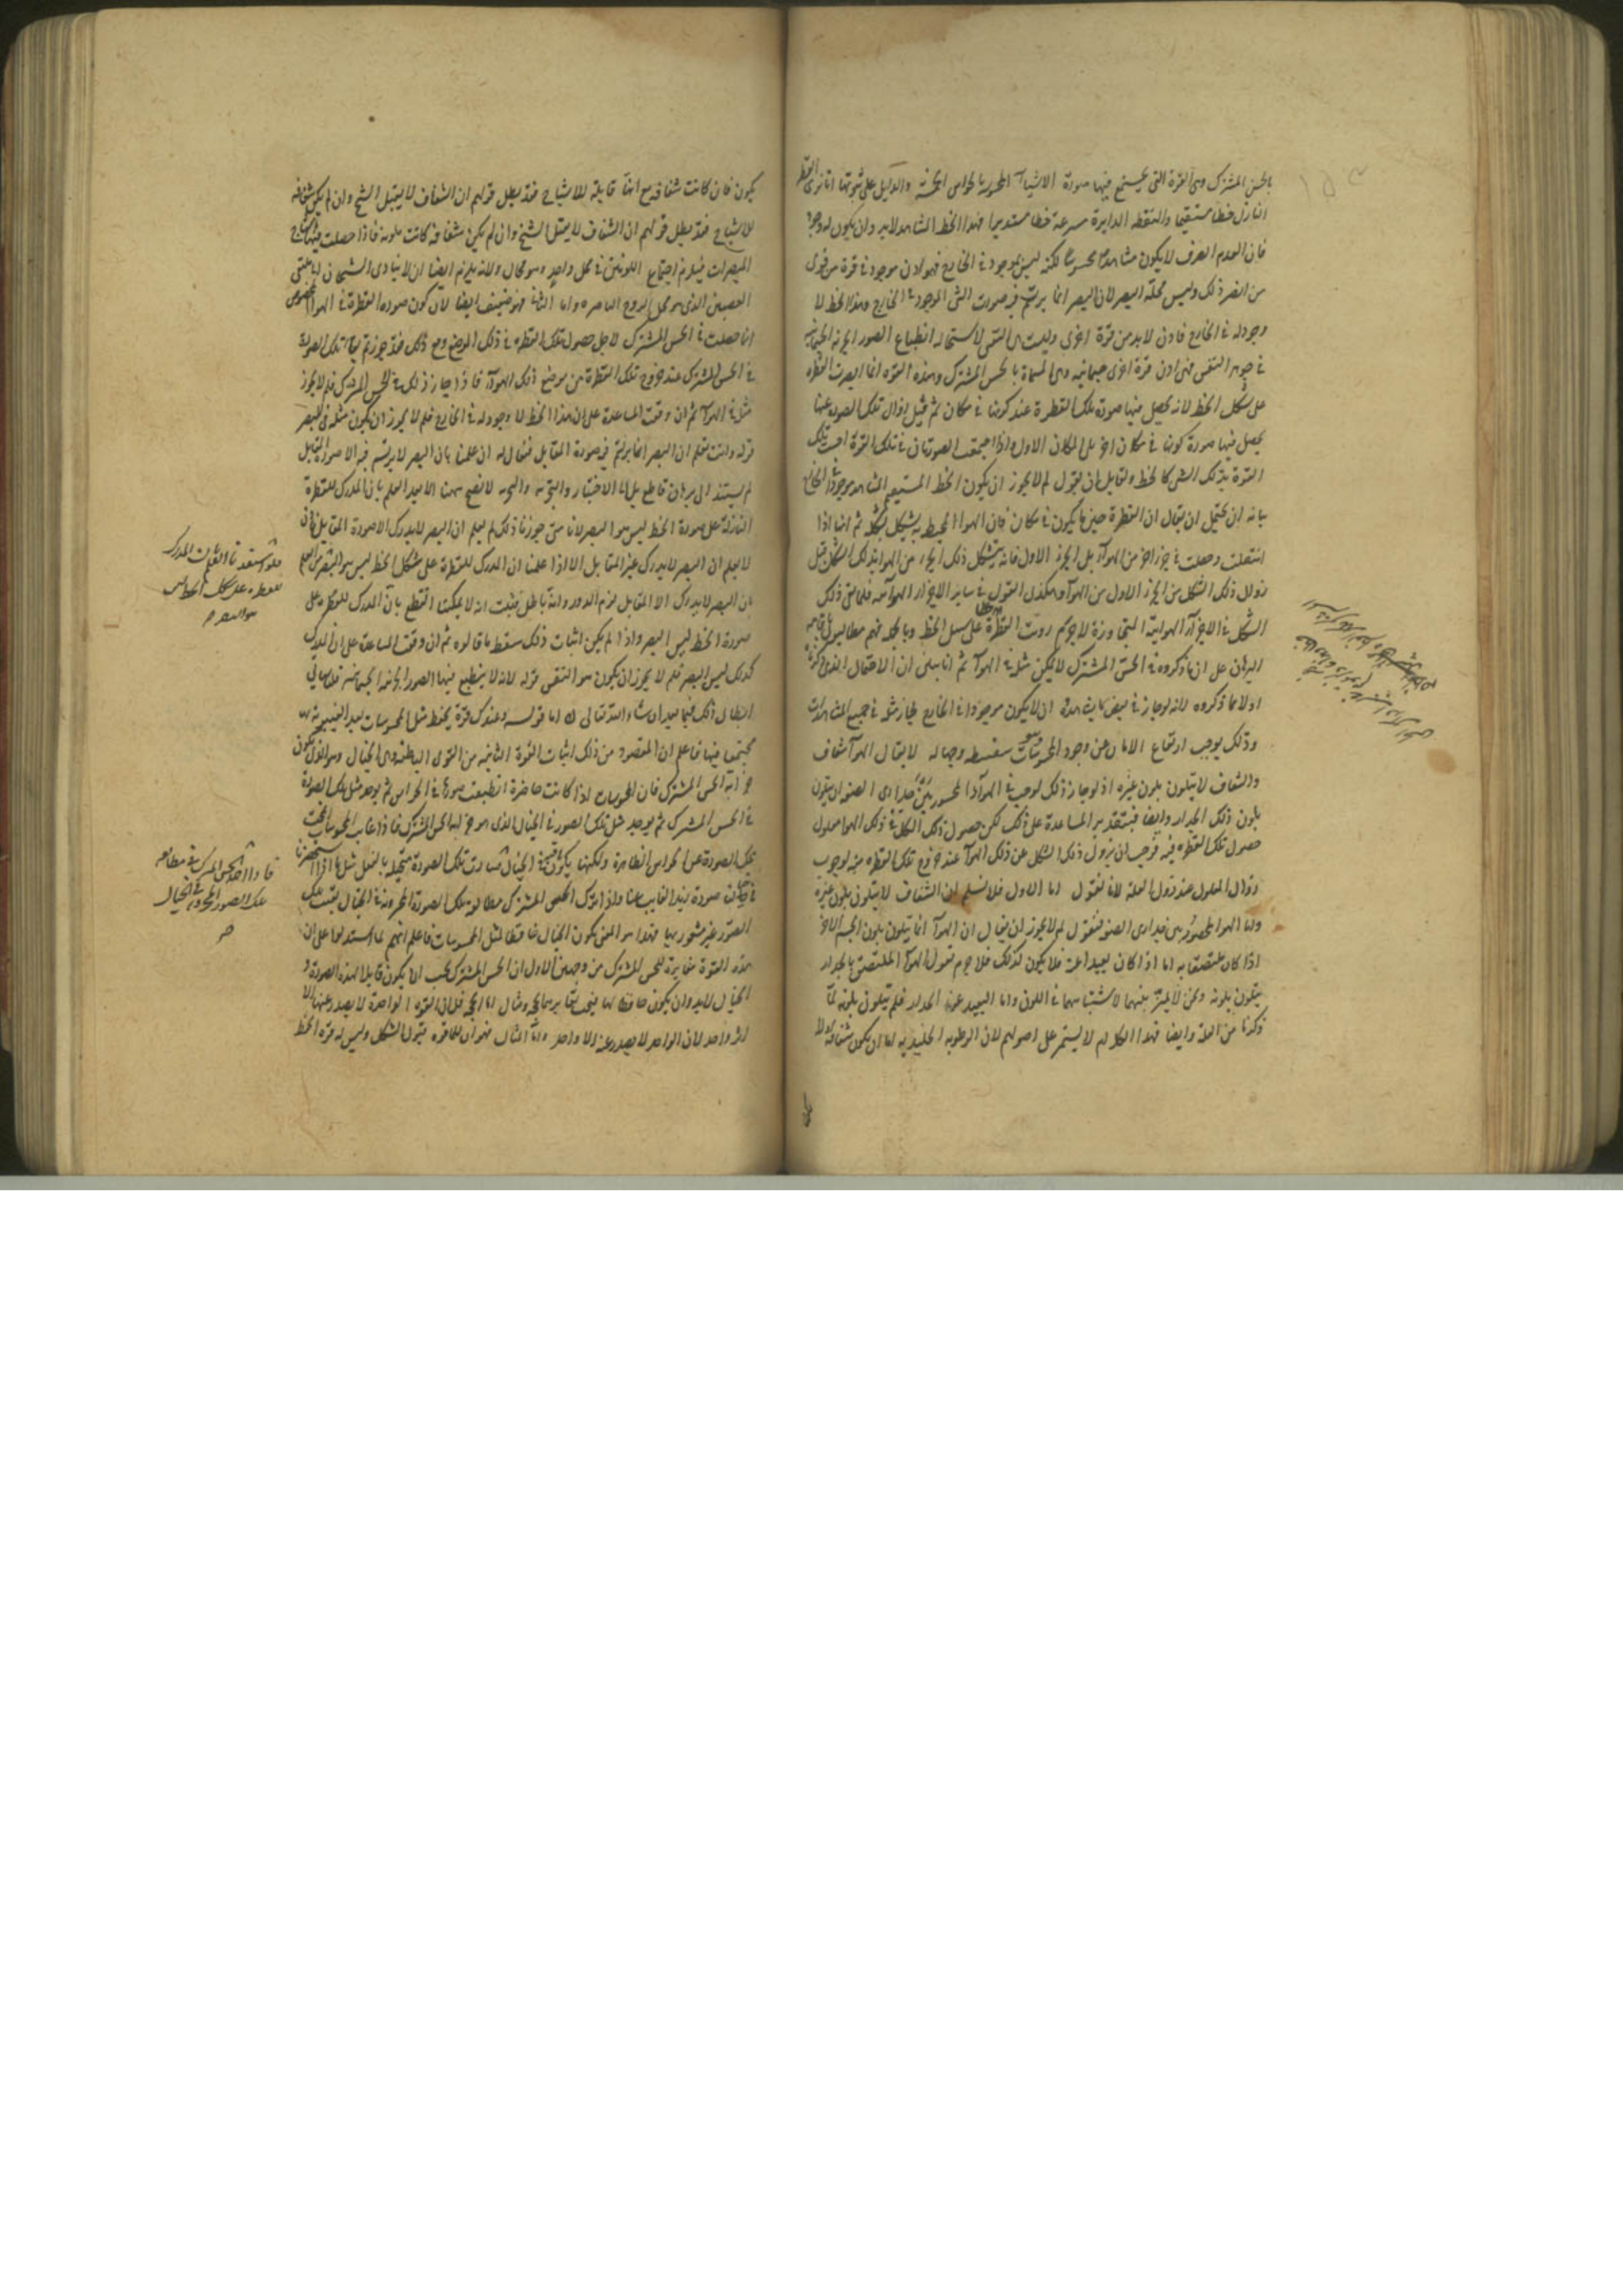 بالحس المشترك وهى القوة التى يجتمع فيها صورة الاشياء المحسوسة بالحواس الخمسة والدليل على ثبوتها انا نرى القطر
النازل خطا مستقيما والنقطة الدايرة بسرعة خطا مستديرا فهذا الخط المشاهد لابد وان يكون له وجود
فان العدم الصرف لا يكون مشاهدا محسوسا لكنه ليس بموجود فى الخارج فهو اذن موجود فى قوة من قوى
من النفس ذلك وليس محله البصر لان البصر انما يرتسم فيه صورت الشى الموجود فى الخارج وهذا الخط لا
وجود له فى الخارج فاذن لابد من قوة اخرى وليست هى النفس لاستحالة انطباع الصور الجزئية الجسمانية
فى جوهر النفس فهى اذن قوة اخرى جسمانية وهى المسماة بالحس المشترك وهذه القوة انما ابصرت القطرة
على شكل الخط لانه يحصل فيها صورة تلك القطرة عند كونها فى مكان ثم قبل زوال تلك الصورة عنها
يحصل فيها صورة كونها فى مكان اخر يلى المكان الاول واذا اجتمعت الصورتان فى تلك القوة احست تلك
القوة بذلك الشى كالخط ولقايل ان يقول لم لا يجوز ان يكون الخط المستقيم المشاهد موجودا فى الخارج
بيانه ان يحتمل ان يقال ان القطرة حين ما يكون فى مكان فان الهواء المحيط به يتشكل بشكله ثم انها اذا
انتقلت وحصلت فى جزء اخر من الهواء يلى الجزء الاول فانه يتشكل ذلك الجزء من الهواء بذلك الشكل قبل
زوال ذلك الشكل من الجزء الاول من الهواء وهكذى القول فى ساير الاجزاء الهوائية فلما بقى ذلك
الشكل فى الاجزاء الهوائية المتجاورة لا جرم رويت القطرة على سبيل الخط وبالجملة فهم مطالبون باقامة
البرهان على ان ما ذكروه فى الحس المشترك لا يمكن مثله فى الهواء ثم انا نبين ان الاحتمال الذى ذكرناه
اولا مما ذكروه لانه لو جاز فى بعض ما يشاهد ان لا يكون موجودا فى الخارج لجاز مثله فى جميع المشاهدات
وذلك يوجب ارتفاع الامان عن وجود المحسوسات وهو سفسطه وجهالة لا يقال الهواء شفاف
والشفاف لا يتلون بلون غيره اذ لو جاز ذلك لوجب فى الهواء المحصور بين جدارى الصفو ان يتلون
بلون ذلك الجدار وايضا فبتقدير المساعدة على ذلك لكن حصول ذلك الشكل فى ذلك الهواء معلول
حصول تلك القطرة فيه فوجب ان يزول ذلك الشكل عن ذلك الهواء عند خروج تلك القطرة منه لوجوب
زوال المعلول عند زوال العلة لانا نقول اما الاول فلا نسلم ان الشفاف لا يتلون بلون غيره
واما الهواء المحصور بين جدارى الصفو فنقول لم لا يجوز ان يقال ان الهواء انما يتلون بلون الجسم الاخر
اذا كان ملتصقا به اما اذا كان بعيدا عنه فلا يكون كذلك فلا جرم نقول الهواء الملتصق بالجدار
يتلون بلونه ونحن لا نميز بينهما لاشتباههما فى اللون واما البعيد عن الجدار فلم يتلون بلونه لما
ذكرنا من العلة وايضا فهذا الكلام لا يستمر على اصولهم لان الرطوبة الجليدية اما ان يكون شفافة او لا
يكون فان كانت شفافة مع انها قابلة للاشباح فقد بطل قولهم ان الشفاف لا يقبل الشبح وان لم يكن شفافة
للاشباح فقد بطل قولهم ان الشفاف لا يقبل الشبح وان لم يكن شفافة كانت ملونة فاذا حصلت فيها اشباح
المبصرات فيلزم اجتماع اللونين فى محل واحد وهو محال ولانه يلزم ايضا ان لا يتادى الشبحان الى ملتقى
العصبتين الذى هو محل الروح الباصرة واما الثانى فهو ضعيف ايضا لان كون صورة القطرة فى الهواء المخصوص
انما حصلت فى الحس المشترك لاجل حصول تلك القطرة فى ذلك الموضع ومع ذلك فقد جوزتم بقاء تلك الصورة
فى الحس المشترك عند خروج تلك القطرة عن موضع ذلك الهواء فاذا جاز ذلك فى الحس المشترك فلم لا يجوز
مثله فى الهواء ثم ان وقعت المساعدة على ان هذا الخط لا وجود له فى الخارج فلم لا يجوز ان يكون مثله فى البصر
قوله وانت تعلم ان البصر انما يرتسم فيه صورة المقابل فنقال له ان علمنا بان البصر لا يرتسم فيه الا صورة المقابل
لم يستند الى برهان قاطع بل الى الاختبار والتجربة والتجربة لا تصح ههنا الا بعد العلم بان المدرك للقطرة
النازلة على صورة الخط ليس هو البصر لانا متى جوزنا ذلك لم يعلم ان البصر لا يدرك الا صورة المقابل فاذن
لا يعلم ان البصر لا يدرك غير المقابل الا اذا علمنا ان المدرك للقطرة على شكل الخط ليس هو البصر
بان البصر لا يدرك الا المقابل لزم الدور وانه باطل فثبت انه لا يمكننا القطع بان المدرك للقطرة على
صورة الخط ليس البصر واذا لم يكن اثبات ذلك سقط ما قالوه ثم ان وقعت المساعدة على ان المدرك
لذلك ليس البصر فلم لا يجوز ان يكون هو النفس قوله لانه لا ينطبع فيها الصور الجزئية الجسمانية قلنا سياتى
ابطال ذلك فيما بعد ان شاء الله تعالى قوله وعندك قوة يحفظ مثل المحسوسات بعد الغيبوبة
مجتمعا فيها فاعلم ان المقصود من ذلك اثبات القوة الثانية من القوى الباطنة وهى الخيال وهو الذى يكون
خزانة الحس المشترك فان المحسوسات اذا كانت حاضرة انطبعت صورها فى الحواس ثم يوجد مثل تلك الصورة
فى الحس المشترك ثم يوجد مثل تلك الصور فى الخيال الذى هو خزانة الحس المشترك فاذا غابت المحسوسات انمحت
تلك الصورة عن الحواس الظاهرة ولكنها يكون باقية فى الخيال تلك الصورة متخيلة بالفعل مثل ما اذا استحضرنا
صورة زيد الغايب عنا واذا ترك الحس المشترك مطالعة تلك الصورة المخزونة فى الخيال بقيت تلك
الصور غير مشعور بها فهذا هو المعنى بكون الخيال حافظا لمثل المحسوسات فاعلم انهم لما استدلوا على ان
هذه القوة مغايرة للحس المشترك من وجهين الاول ان الحس المشترك يجب ان يكون قابلا لهذه الصورة و
الخيال لابد وان يكون حافظا لها فيجب تغايرهما بحجة ومثال اما الحجة فلان القوة الواحدة لا يصدر عنها الا
اثر واحد لان الواحد لا يصدر عنه الا واحد واما المثال فهو ان للماء قوة قبول الشكل وليس له قوة الحفظ
فلو استفدنا العلم بان المدرك
للقطرة على شكل الخط ليس
هو البصر
فاذا اخذ الحس المشترك فى مطالعة
تلك الصور المخزونة فى الخيال